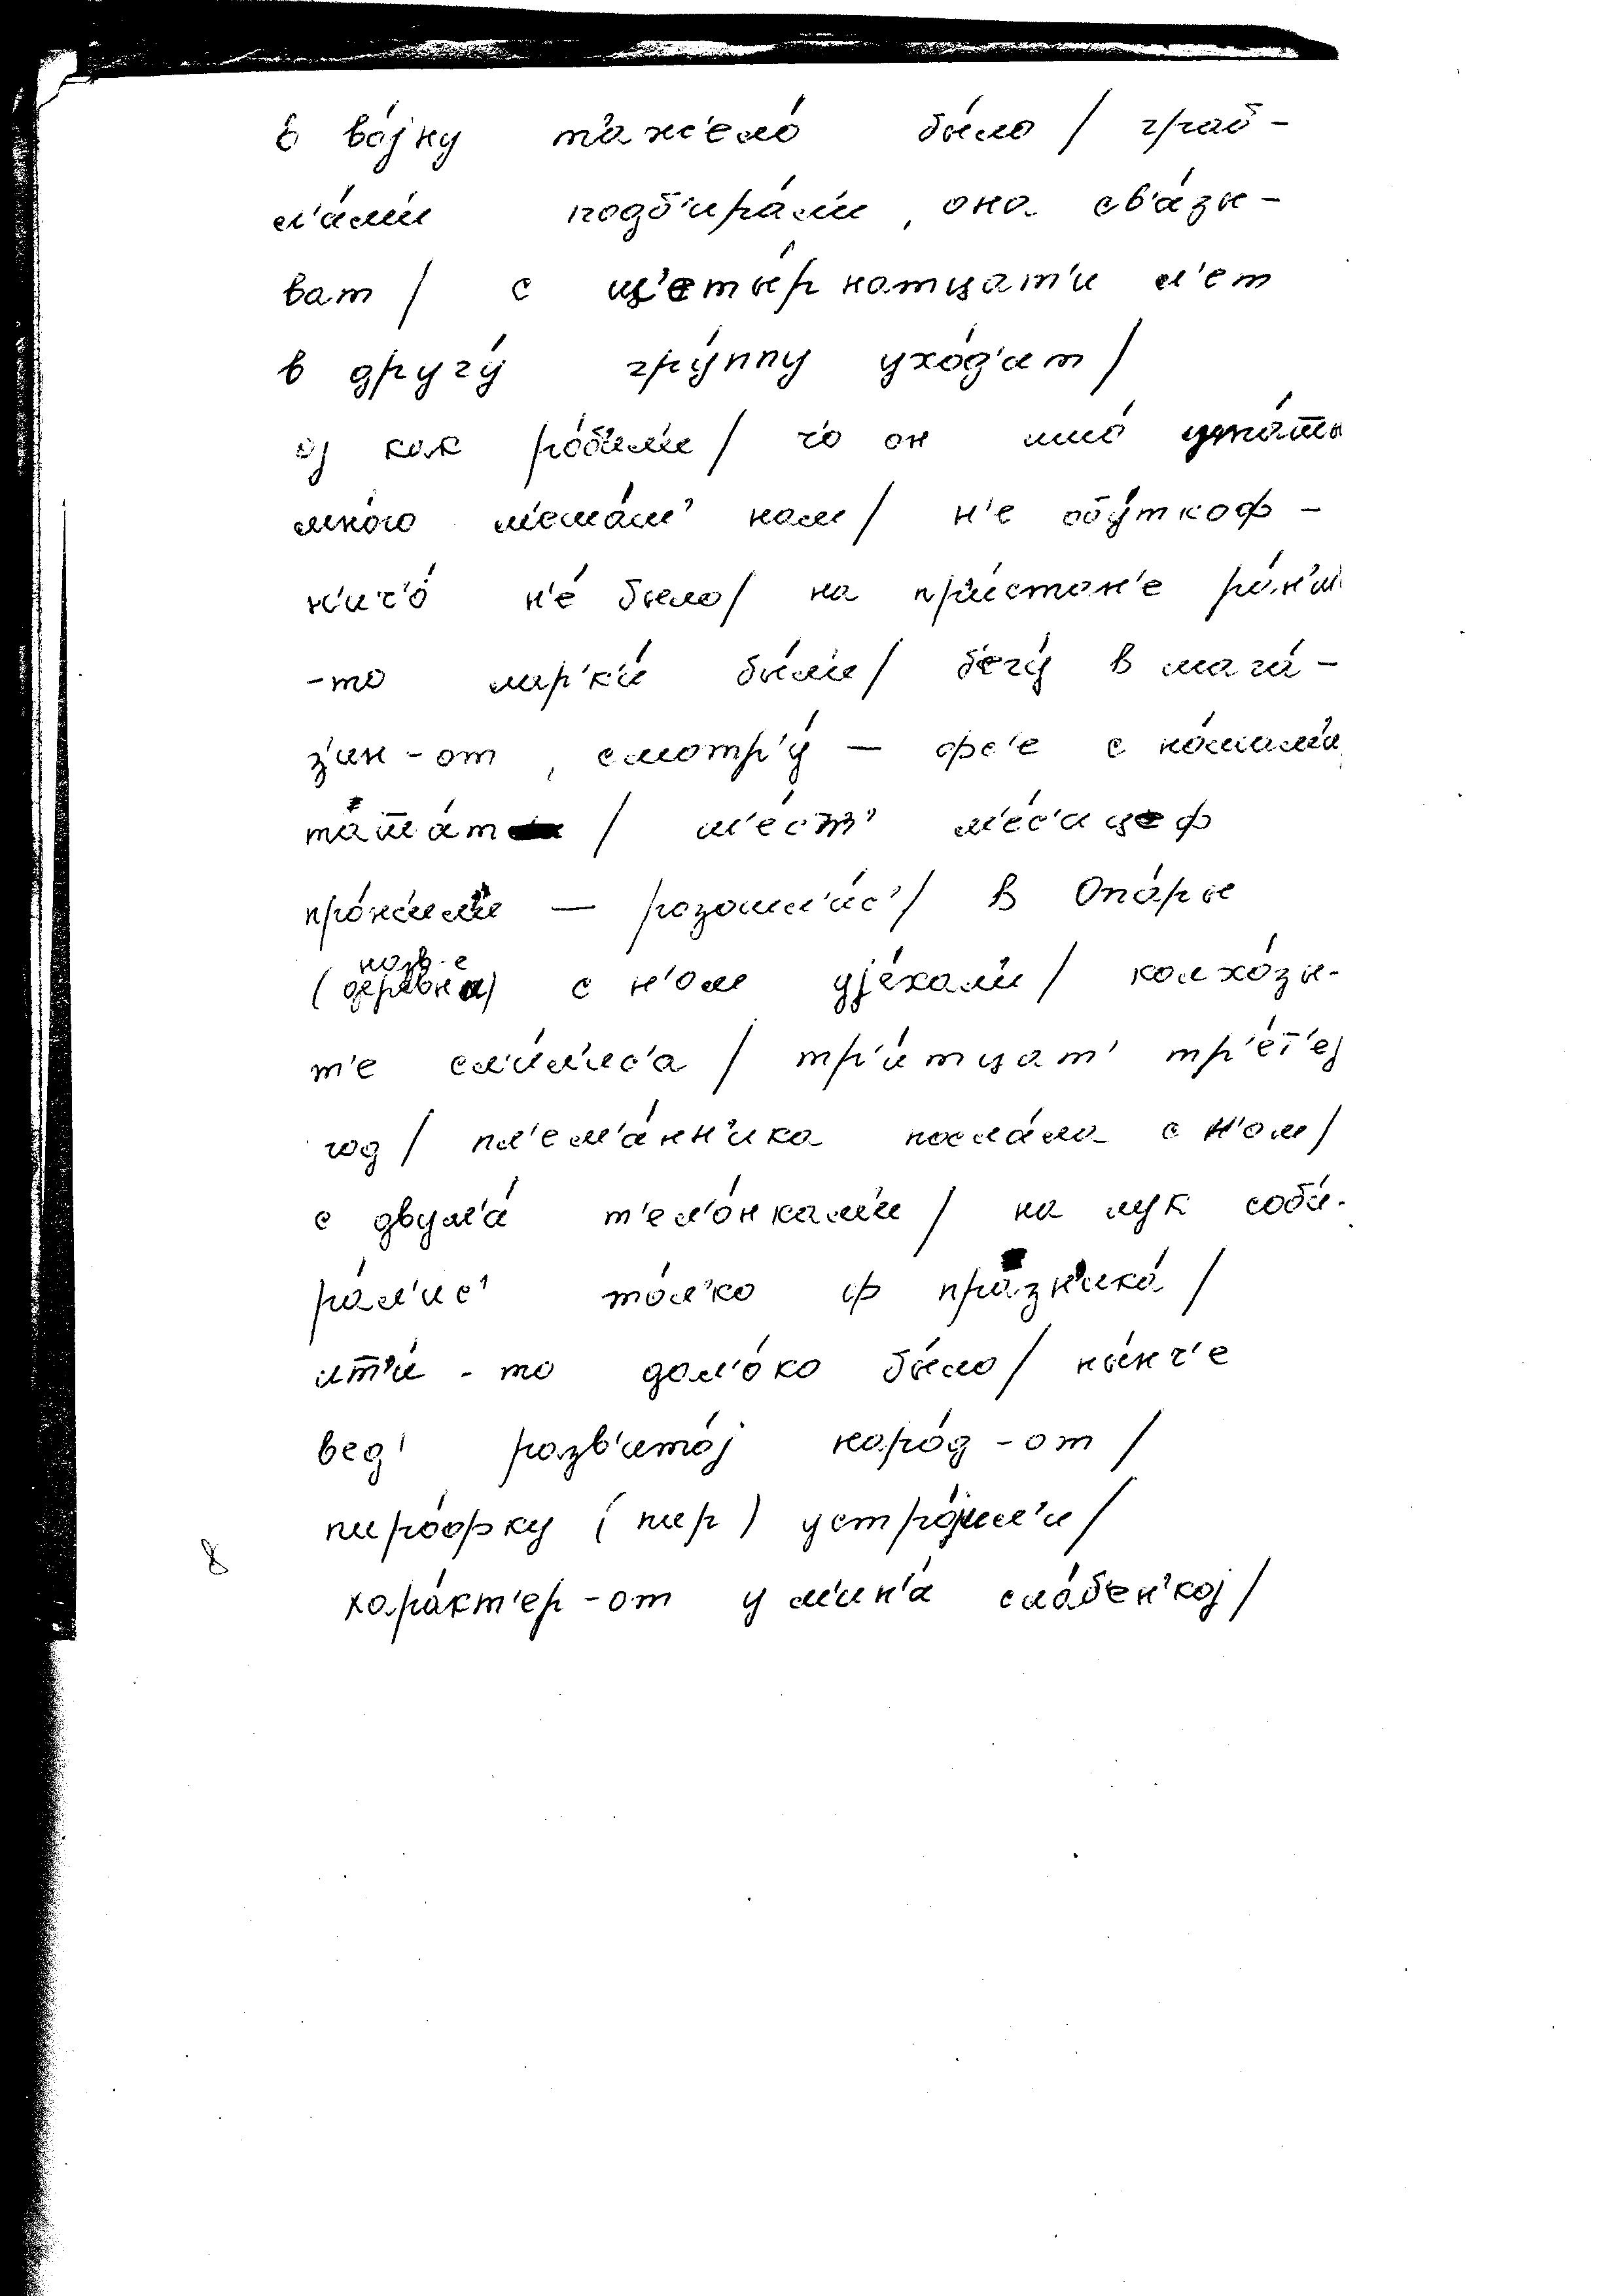 в во́јну т'ажело́ бы́ло / граб-
л'а́м'и подб'ира́л'и, она св'а́зы-
ват / с ц'еты́рнатцат'и л'ет
в другу́ гру́ппу ухо́д'ат /
ој как ро́б'ил'и / ч'о он
мно́го м'еша́л' нам / н'е обу́ткоф -
н'ич'о́ н'е́ было / на пр'и́стан'е
-то лар'к'и́ бы́л'и / б'егу́ в мага-
з'и́н-от, смотр'у́ — фс'е с но́шам'и
та̄ш́ат / ш'ес'т' м'е́с'ацеф
про́жил'и — разошл'и́с' / в Опа́ры
(назв-е деревни) с н'ом ујéхал'и / колхо́зы-
т'е сл'и́л'ис'а / тр'и́тцат' тр'е́т'еј
год / пл'ем'а́нн'ика посла́ла с н'ом /
с двум'а́ т'ел'о́нкам'и / на лук соб'и-
ра́л'ис' то́л'ко ф пра́зн'ика́ /
ит'т'и́ - то дал'о́ко бы́ло / ны́нч'е
вед' разв'ито́ј наро́д-от /
пиро́фку (пир) устро́јил'и /
8
хара́кт'ер-от у м'ин'а́ сла́б'ен'кој /